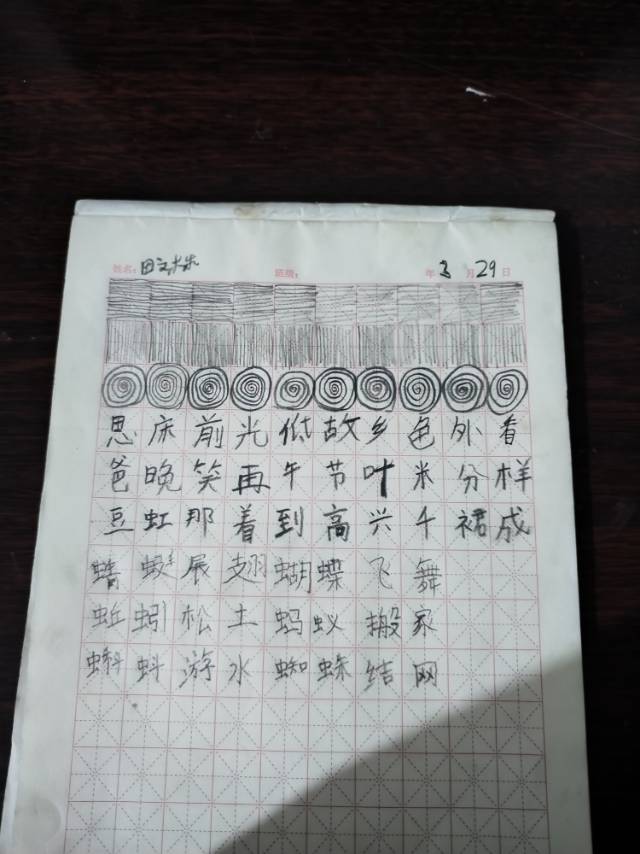 姓名：田 班级： 年 3 月 29 日
思床前光低故乡色外看
爸晚笑再午节叶米分样
豆虹那着到高兴千裙成
蜻蜓展翅蝴蝶飞舞
蚯蚓松土蚂蚁搬家
蝌蚪游水蜘蛛结网